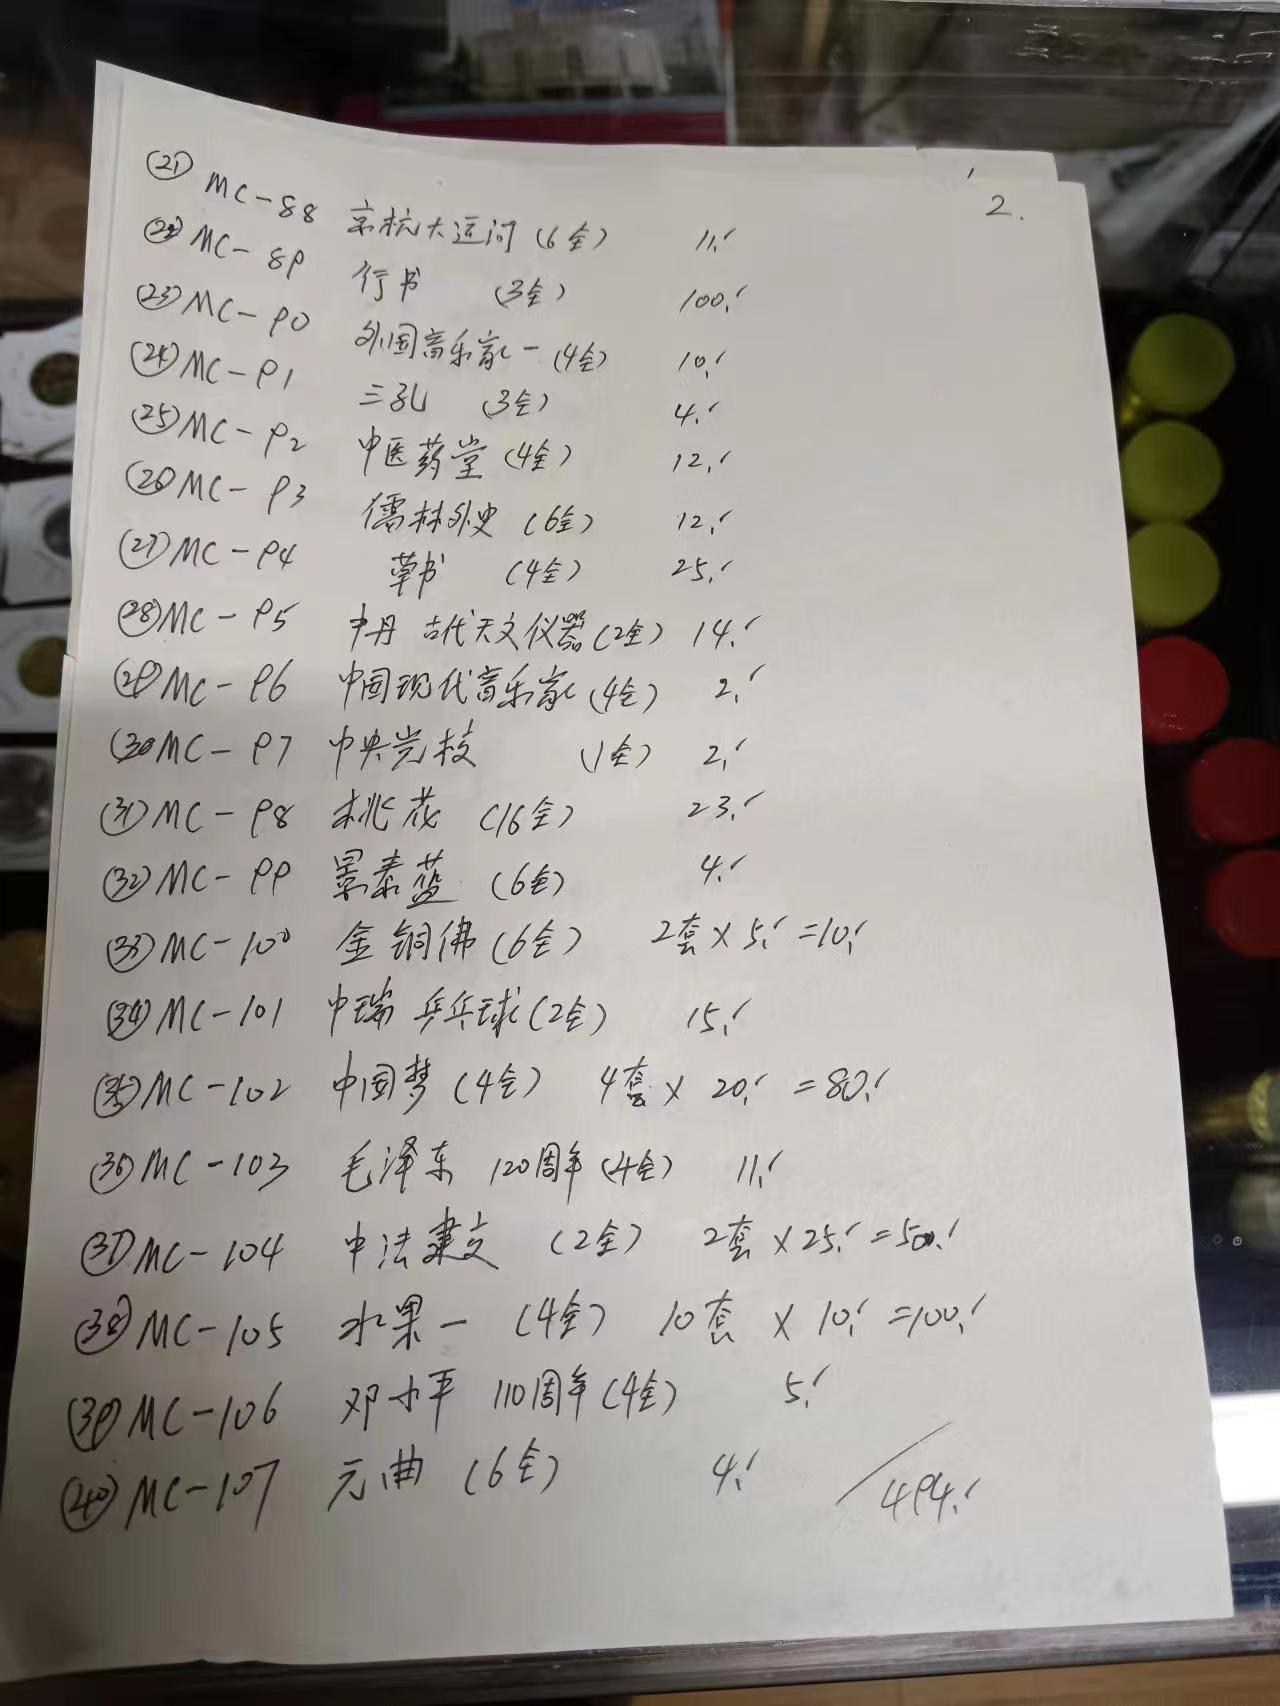 2.
㉑ MC-88 京杭大运河 (6全) 11.
㉒ MC-89 行书 (3全) 100.
㉓ MC-90 外国音乐家一 (4全) 10.
㉔ MC-91 三孔 (3全) 4.
㉕ MC-92 中医药堂 (4全) 12.
㉖ MC-93 儒林外史 (6全) 12.
㉗ MC-94 草书 (4全) 25.
㉘ MC-95 中丹 古代天文仪器 (2全) 14.
㉙ MC-96 中国现代音乐家 (4全) 2.
㉚ MC-97 中央党校 (1全) 2.
㉛ MC-98 桃花 (16全) 23.
㉜ MC-99 景泰蓝 (6全) 4.
㉝ MC-100 金铜佛 (6全) 2套×5. =10.
㉞ MC-101 中瑞 乒乓球 (2全) 15.
㉟ MC-102 中国梦 (4全) 4套× 20. =80.
㊱ MC-103 毛泽东 120周年 (4全) 11.
㊲ MC-104 中法建交 (2全) 2套×25. =50.
㊳ MC-105 水果一 (4全) 10套 × 10. =100.
㊴ MC-106 邓小平 110周年 (4全) 5.
㊵ MC-107 元曲 (6全) 4.
494.